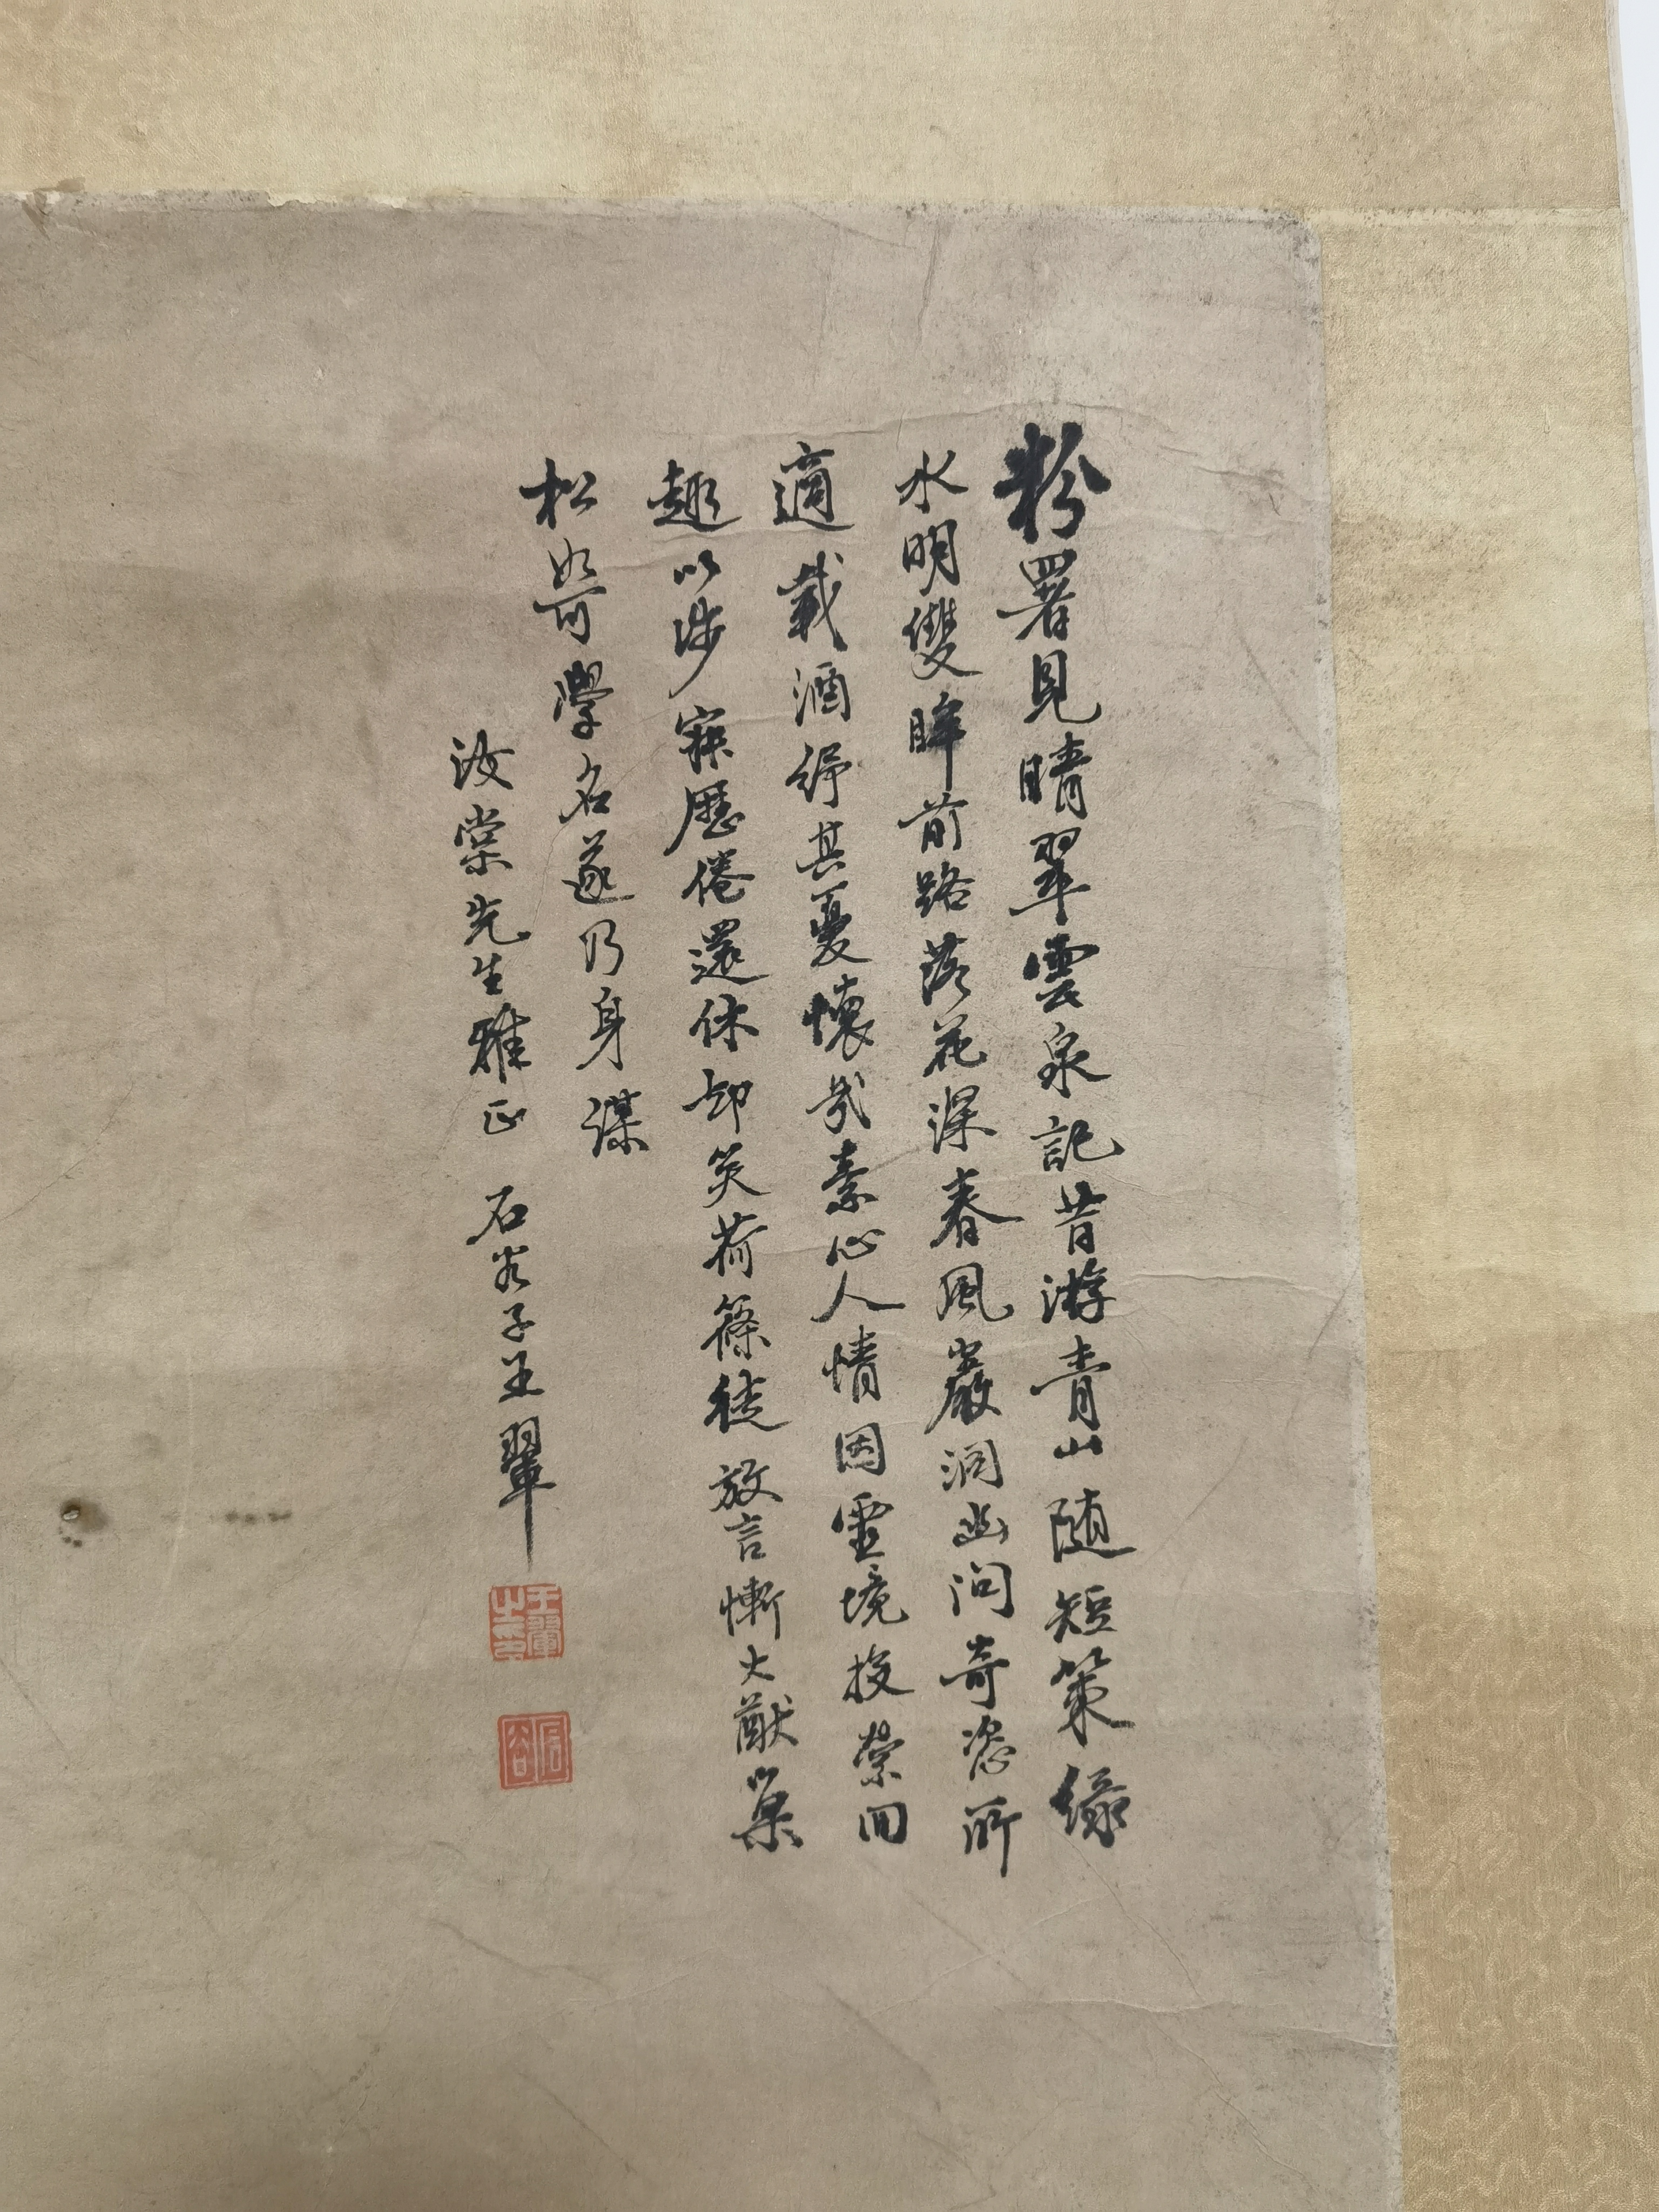 粉署見晴翠雲泉記昔游青山随短策緣
水明雙眸前路落花深春風巖洞幽问奇恣所
適載酒紓其憂懷哉素心人情因靈境投縈回
趣以涉寐歷倦還休却笑荷篠徒放言慚大猷巢
松如可學名遂乃身謀
汝棠先生雅正 石谷子王翬
王翬之印
石谷